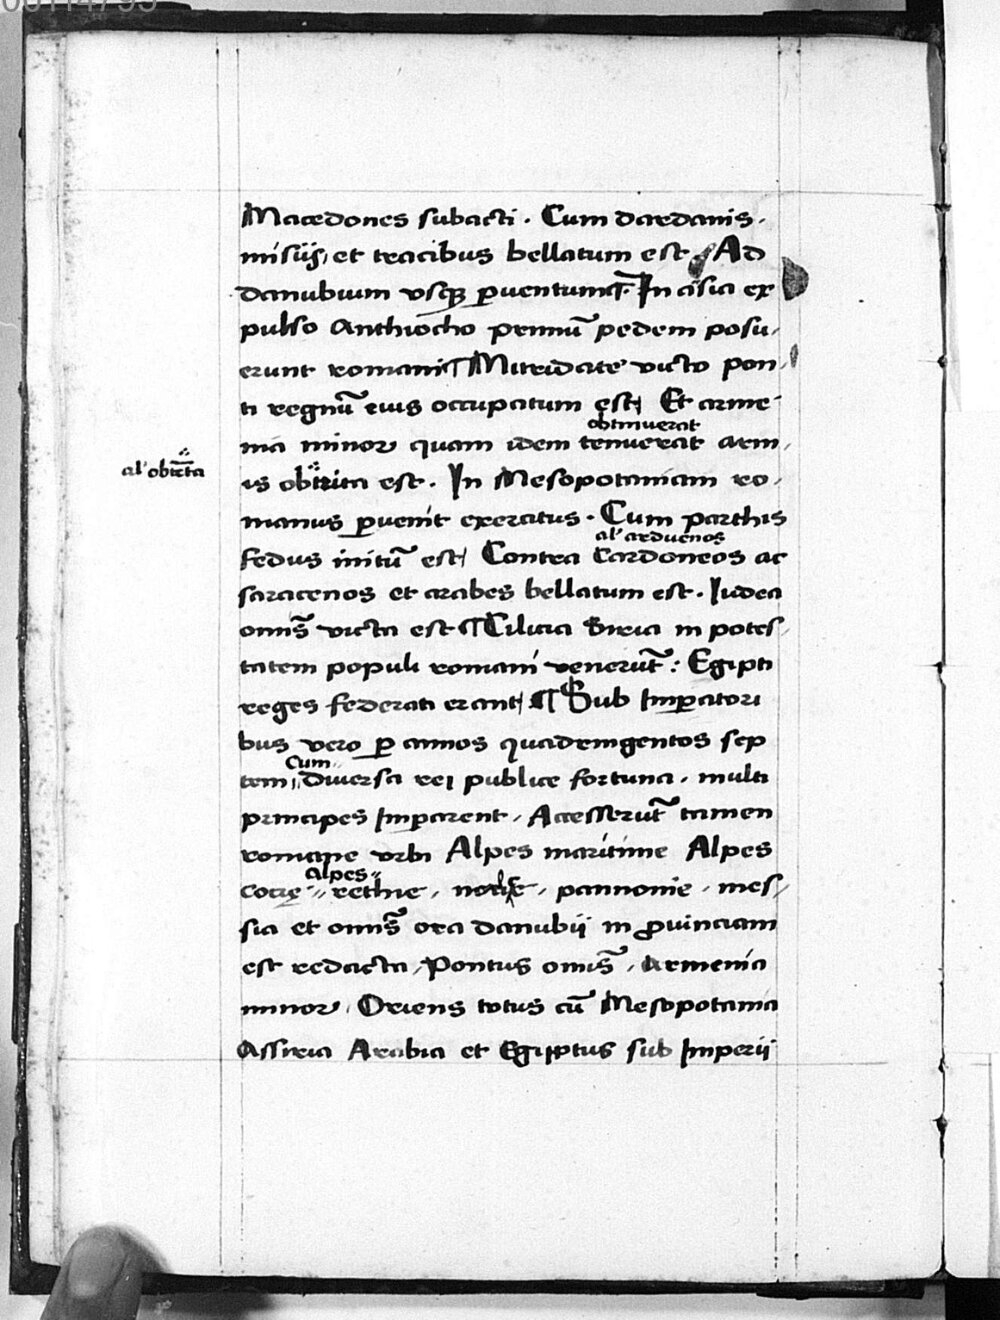 Macedones subacti . Cum dardanis .
misiis, et tracibus bellatum est . Ad
danubium vsq₃ ꝑuentumq̄ . In asia ex
pulso Anthiocho primū pedem posu/
erunt romani ¶ Mitridate victo pon/
ti regnū eius occupatum est/ Et arme
obtinuerat
nia minor quam idem tenuerat arm/
al' obtēta
is obtrita est . In Mesopotamiam ro/
manus ꝑuenit exercitus . Cum parthis
al' arduenos
fedus initū est/ Contra Cardoneos ac
saracenos et arabes bellatum est . Iudea
omnis̄ victa est ¶ Cilicia Siria in potes/
tatem populi romani venerūt : Egipti
reges federati erant/ ¶ Sub Imꝑatori
bus vero ꝑ annos quadringentos sep
Cum
tem, diuersa rei publice fortuna . multi
principes Imꝑarent / Accesserūt tamen
romane vrbi Alpes maritime Alpes
Alpes
cocię rethie / / pannonie / mes/
sia et omnis̄ ora danubij in ꝓuinciam
est redacta / Pontus omis̄ / Armenia
minor / Oriens totus cū Mesopotamia
Assiria Arabia et Egiptus sub Imperij